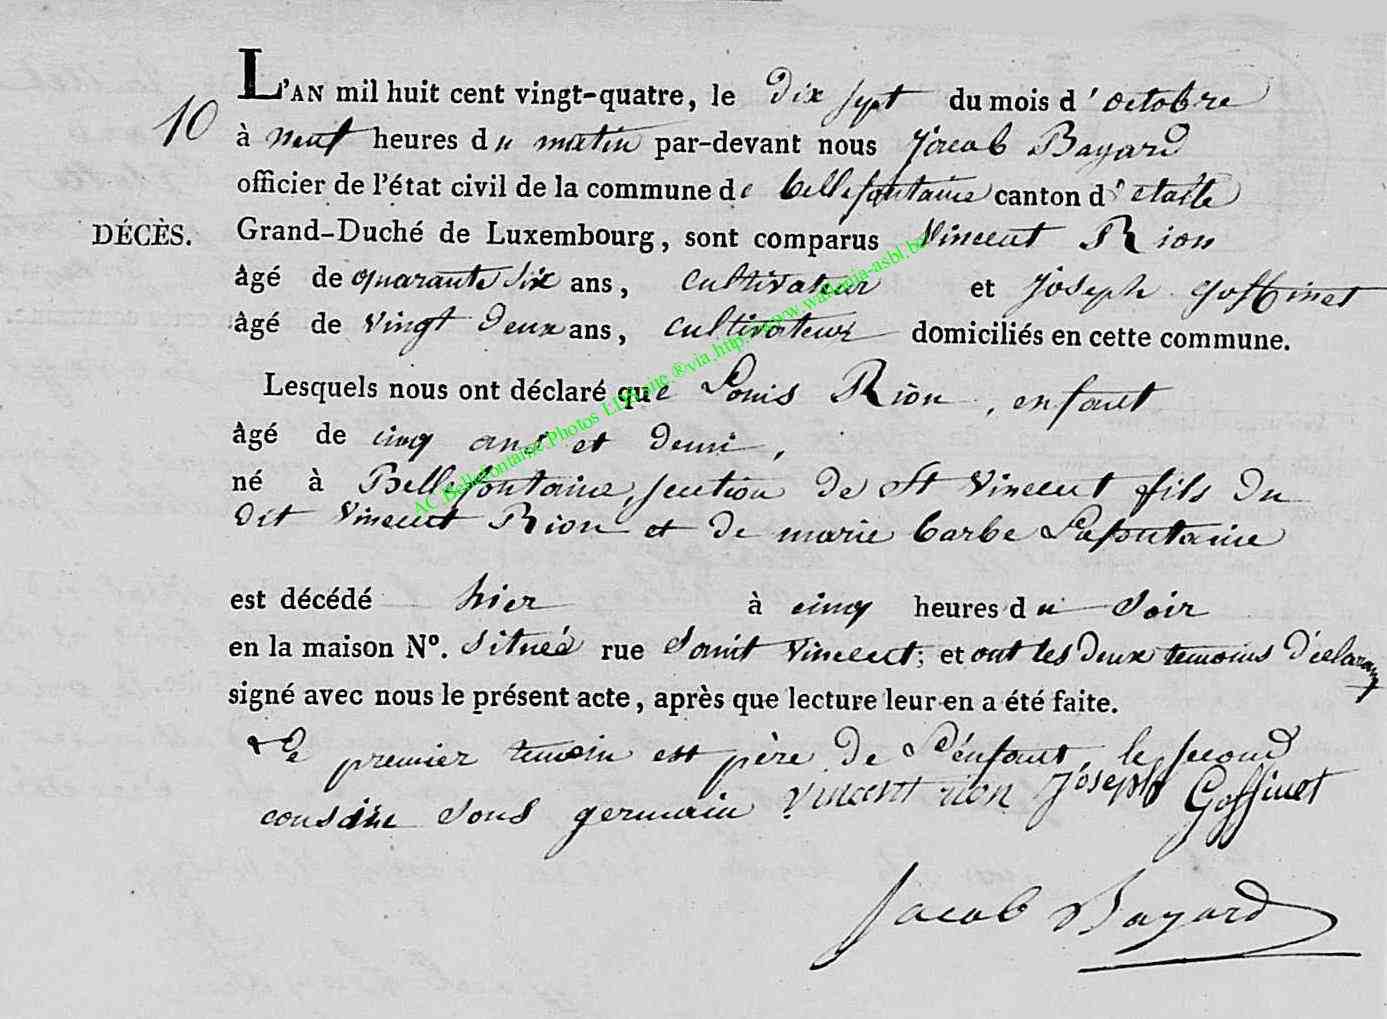 L'AN mil huit cent vingt-quatre, le dix sept du mois d'octobre
10
à neuf heures du matin par-devant nous Jacob Bayard
officier de l'état civil de la commune de bellefontaine canton d'etalle
DÉCÈS.
Grand-Duché de Luxembourg, sont comparus Vincent Rion
âgé de quarante six ans, cultivateur et Joseph Goffinet
âgé de vingt deux ans, cultivateur domiciliés en cette commune.
Lesquels nous ont déclaré que Louis Rion, enfant
âgé de cinq ans et demi,
né à Bellefontaine, section de St Vincent fils du
dit Vincent Rion et de marie barbe Lafontaine
est décédé hier à cinq heures du soir
en la maison N°. située rue Saint Vincent; et ont les deux temoins déclarans
signé avec nous le présent acte, après que lecture leur en a été faite.
Le premier temoin est père de L'énfant, le second
cousin sous germain vincent rion Joseph Goffinet
Jacob Bayard
AC Bellefontaine.Photos LDHanc.®via.http://www.wallonia-asbl.be